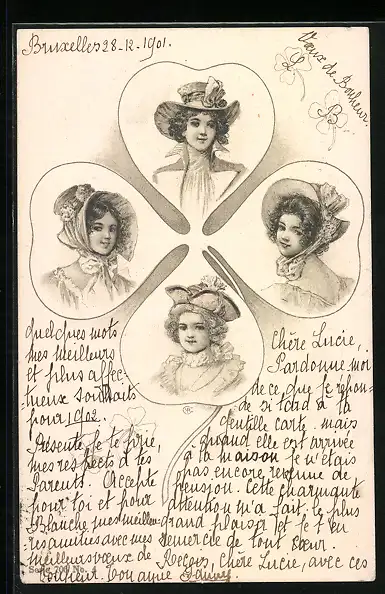 Bruxelles 28-12-1901.
Vœux de Bonheur.
L
B
Chère Lucie,
Pardonne-moi
de ce que je répon-
de si tard à ta
gentille carte. mais
quand elle est arrivée
à la maison je n'étais
pas encore revenue de
pension. Cette charmante
attention m'a fait le plus
grand plaisir et je t'en
remercie de tout cœur.
Reçois, Chère Lucie, avec ces
quelques mots
mes meilleurs
et plus affec-
tueux souhaits
pour 1902.
Présente, je te prie,
mes respects à tes
Parents. Accepte
pour toi et pour
Blanche mes meilleu-
res amitiés avec mes
meilleurs vœux de
bonheur. Ton amie
Serie 700 No.